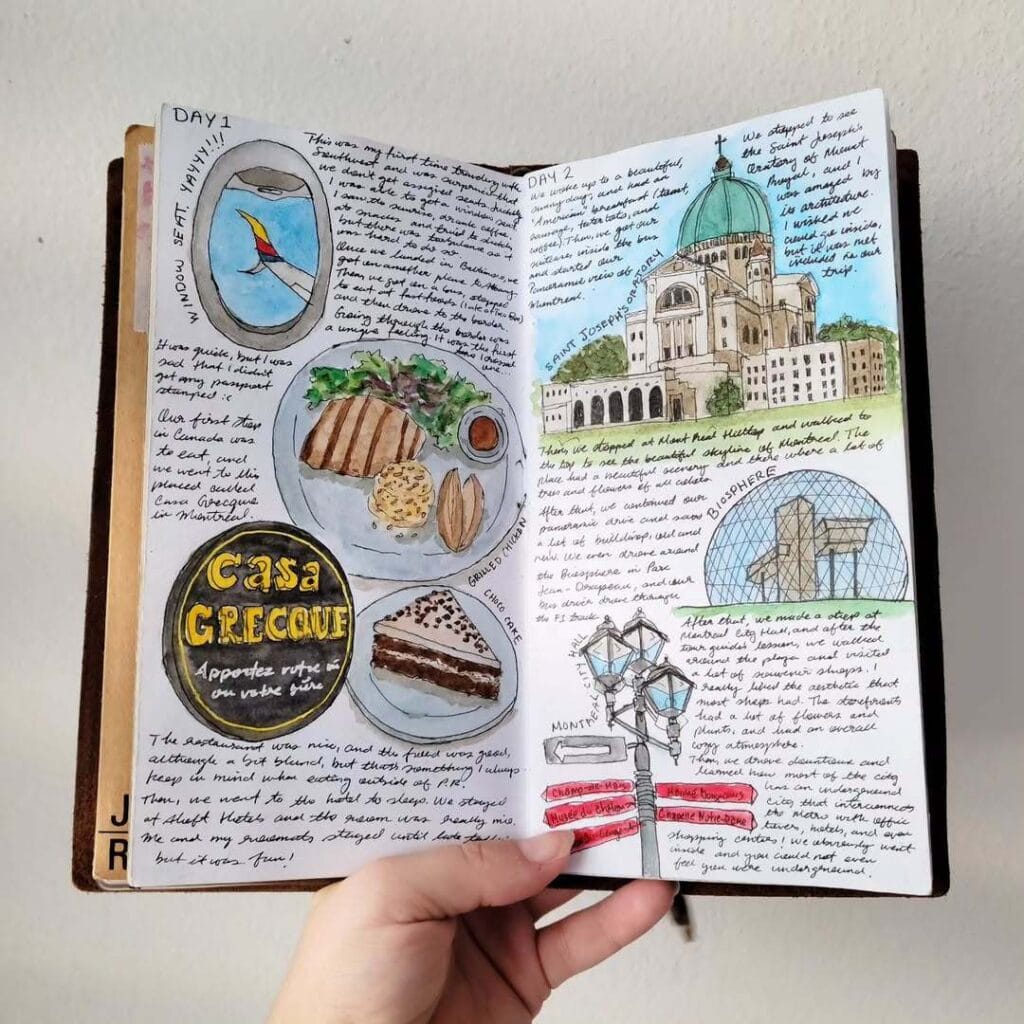 DAY 1
WINDOW SEAT. YAYYY!!!
This was my first time traveling with
Southwest and was surprised that
we don't get assigned seats. Luckily
I was able to get a window seat
I saw the sunrise, drank coffee,
ate snacks and tried to sketch
but there was turbulence so it
was hard to do so
Once we landed in Baltimore, we
got on another plane to
Then we got on a bus, stopped
to eat at fast foods
and then drove to the border.
Going through the border was
a unique feeling. It was the first
time I crossed
one...
It was quick, but I was
sad that I didn't
get my passport
stamped :c
Our first stop
in Canada was
to eat, and
we went to this
placed called
Casa Grecque
in Montreal.
GRILLED CHICKEN
Casa
GRECQUE
Apportez votre vin
ou votre
CHOCO CAKE
The restaurant was nice, and the food was good,
although a bit bland, but thats something I always
keep in mind when eating outside of P.R.
Then, we went to the hotel to sleep. We stayed
at Aloft Hotels and the room was really nice.
Me and my roommats stayed until late
but it was fun!
J
R
DAY 2
We woke up to a beautiful,
sunny day, and had an
"American" breakfast (toast,
sausage, potato, and
coffee). Then, we got our
suitcase inside the bus
and started our
Panoramic view of
Montreal.
We stopped to see
the Saint Joseph's
Oratory of Mount
Royal, and I
was amazed by
its architecture.
I wished we
could go inside,
but it was not
included in our
trip.
SAINT JOSEPH'S ORATORY
Then, we stopped at Mont Real Hilltop and walked to
the top to see the beautiful skyline of Montreal. The
place had a beautiful scenery and there where a lot of
trees and flowers of all colors.
After that, we continued our
panoramic drive and saw
a lot of buildings, old and
new. We even drove around
the Biosphere in Parc
Jean-Drapeau, and our
bus driver drove through
the F1 track.
BIOSPHERE
After that, we made a stop at
Montreal City Hall, and after the
tour guide's lesson, we walked
around the plaza and visited
a lot of souvenir shops. I
really liked the aesthetic that
most shops had. The storefronts
had a lot of flowers and
plants, and had an overall
cozy atmosphere.
Then, we drove downtown and
learned how most of the city
has an underground
city that interconnects
the metro with office
towers, hotels, and even
shopping centers! We obviously went
inside and you could not even
feel you were underground.
MONTREAL CITY HALL
Champ-de-Mars
Marché Bonsecours
Musée du Château
Chapelle Notre-Dame